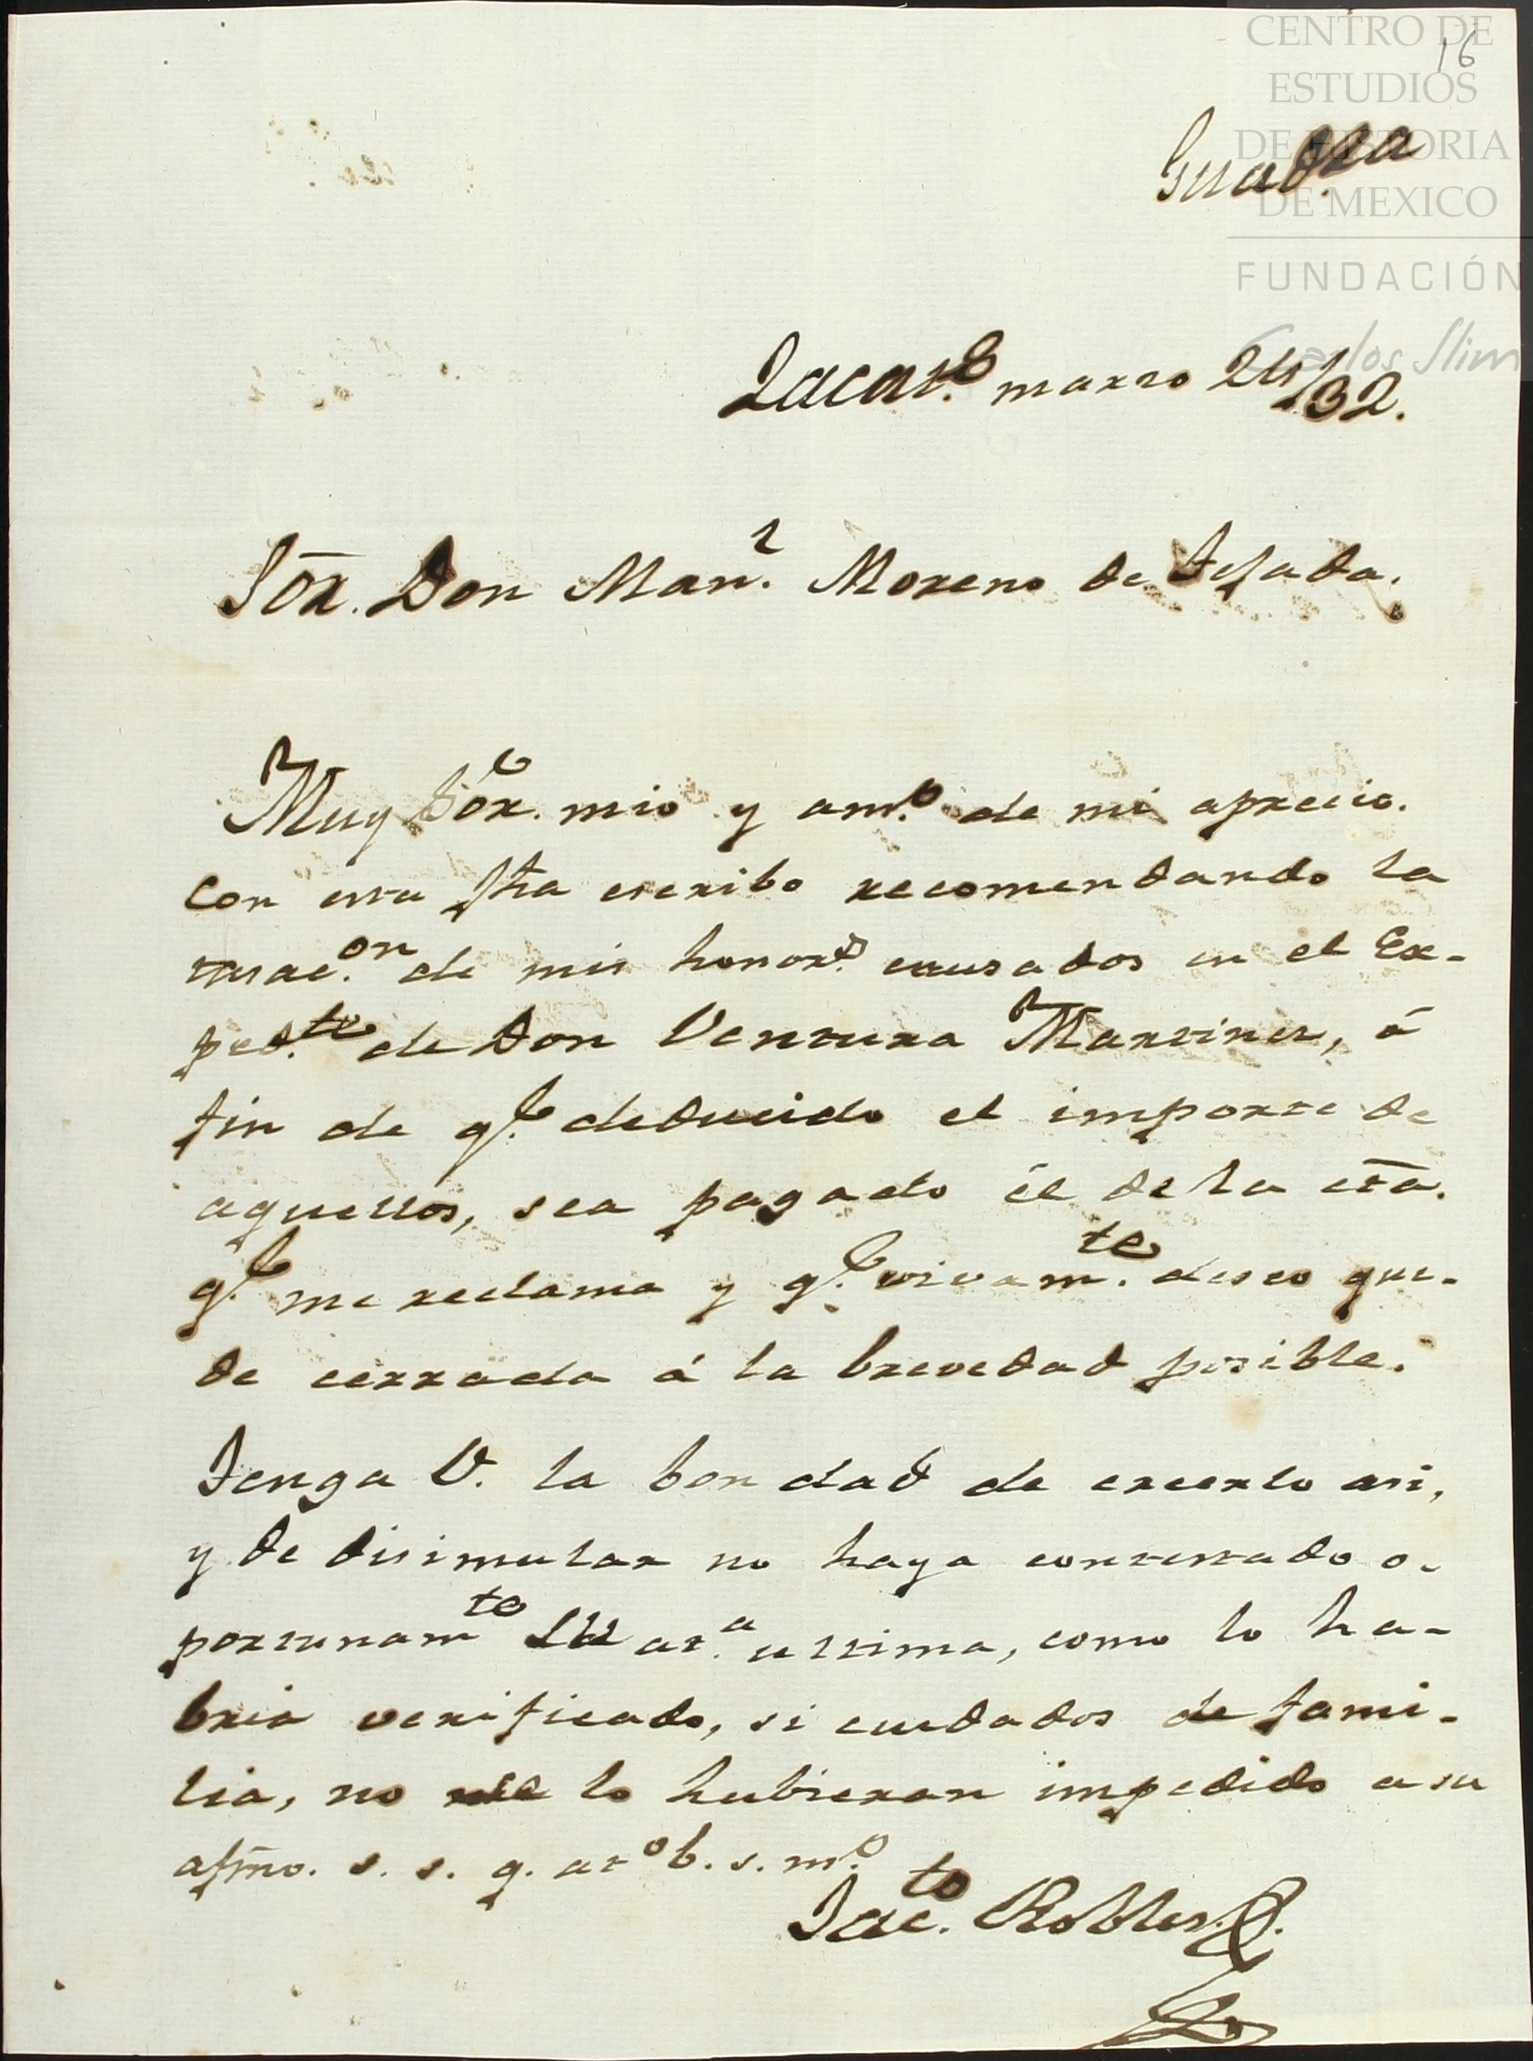 CENTRO DE
ESTUDIOS
DE HISTORIA
DE MEXICO
FUNDACIÓN
Carlos Slim
16
Guadxa
Zacats. marzo 24/32.
Sōr. Don Manl. Moreno de Tejada.
Muy Sōr. mio y amo. de mi aprecio.
Con esta fha escribo recomendando la
tasacon. de mis honors. causados en el Ex-
pedte. de Don Ventura Martines, á
fin de qe. deducido el importe de
aquellos, sea pagado él de la cta.
qe. me reclama y qe. vivamte. deseo que-
de cerrada á la brevedad posible.
Tenga V. la bondad de creerlo asi,
y de disimular no haya contestado o-
portunamte su ata. ultima, como lo ha-
bria verificado, si cuidados de fami-
lia, no me lo hubieran impedido a su
afmo. s. s. q. ato b. s. mo.
Jacto. Robles.